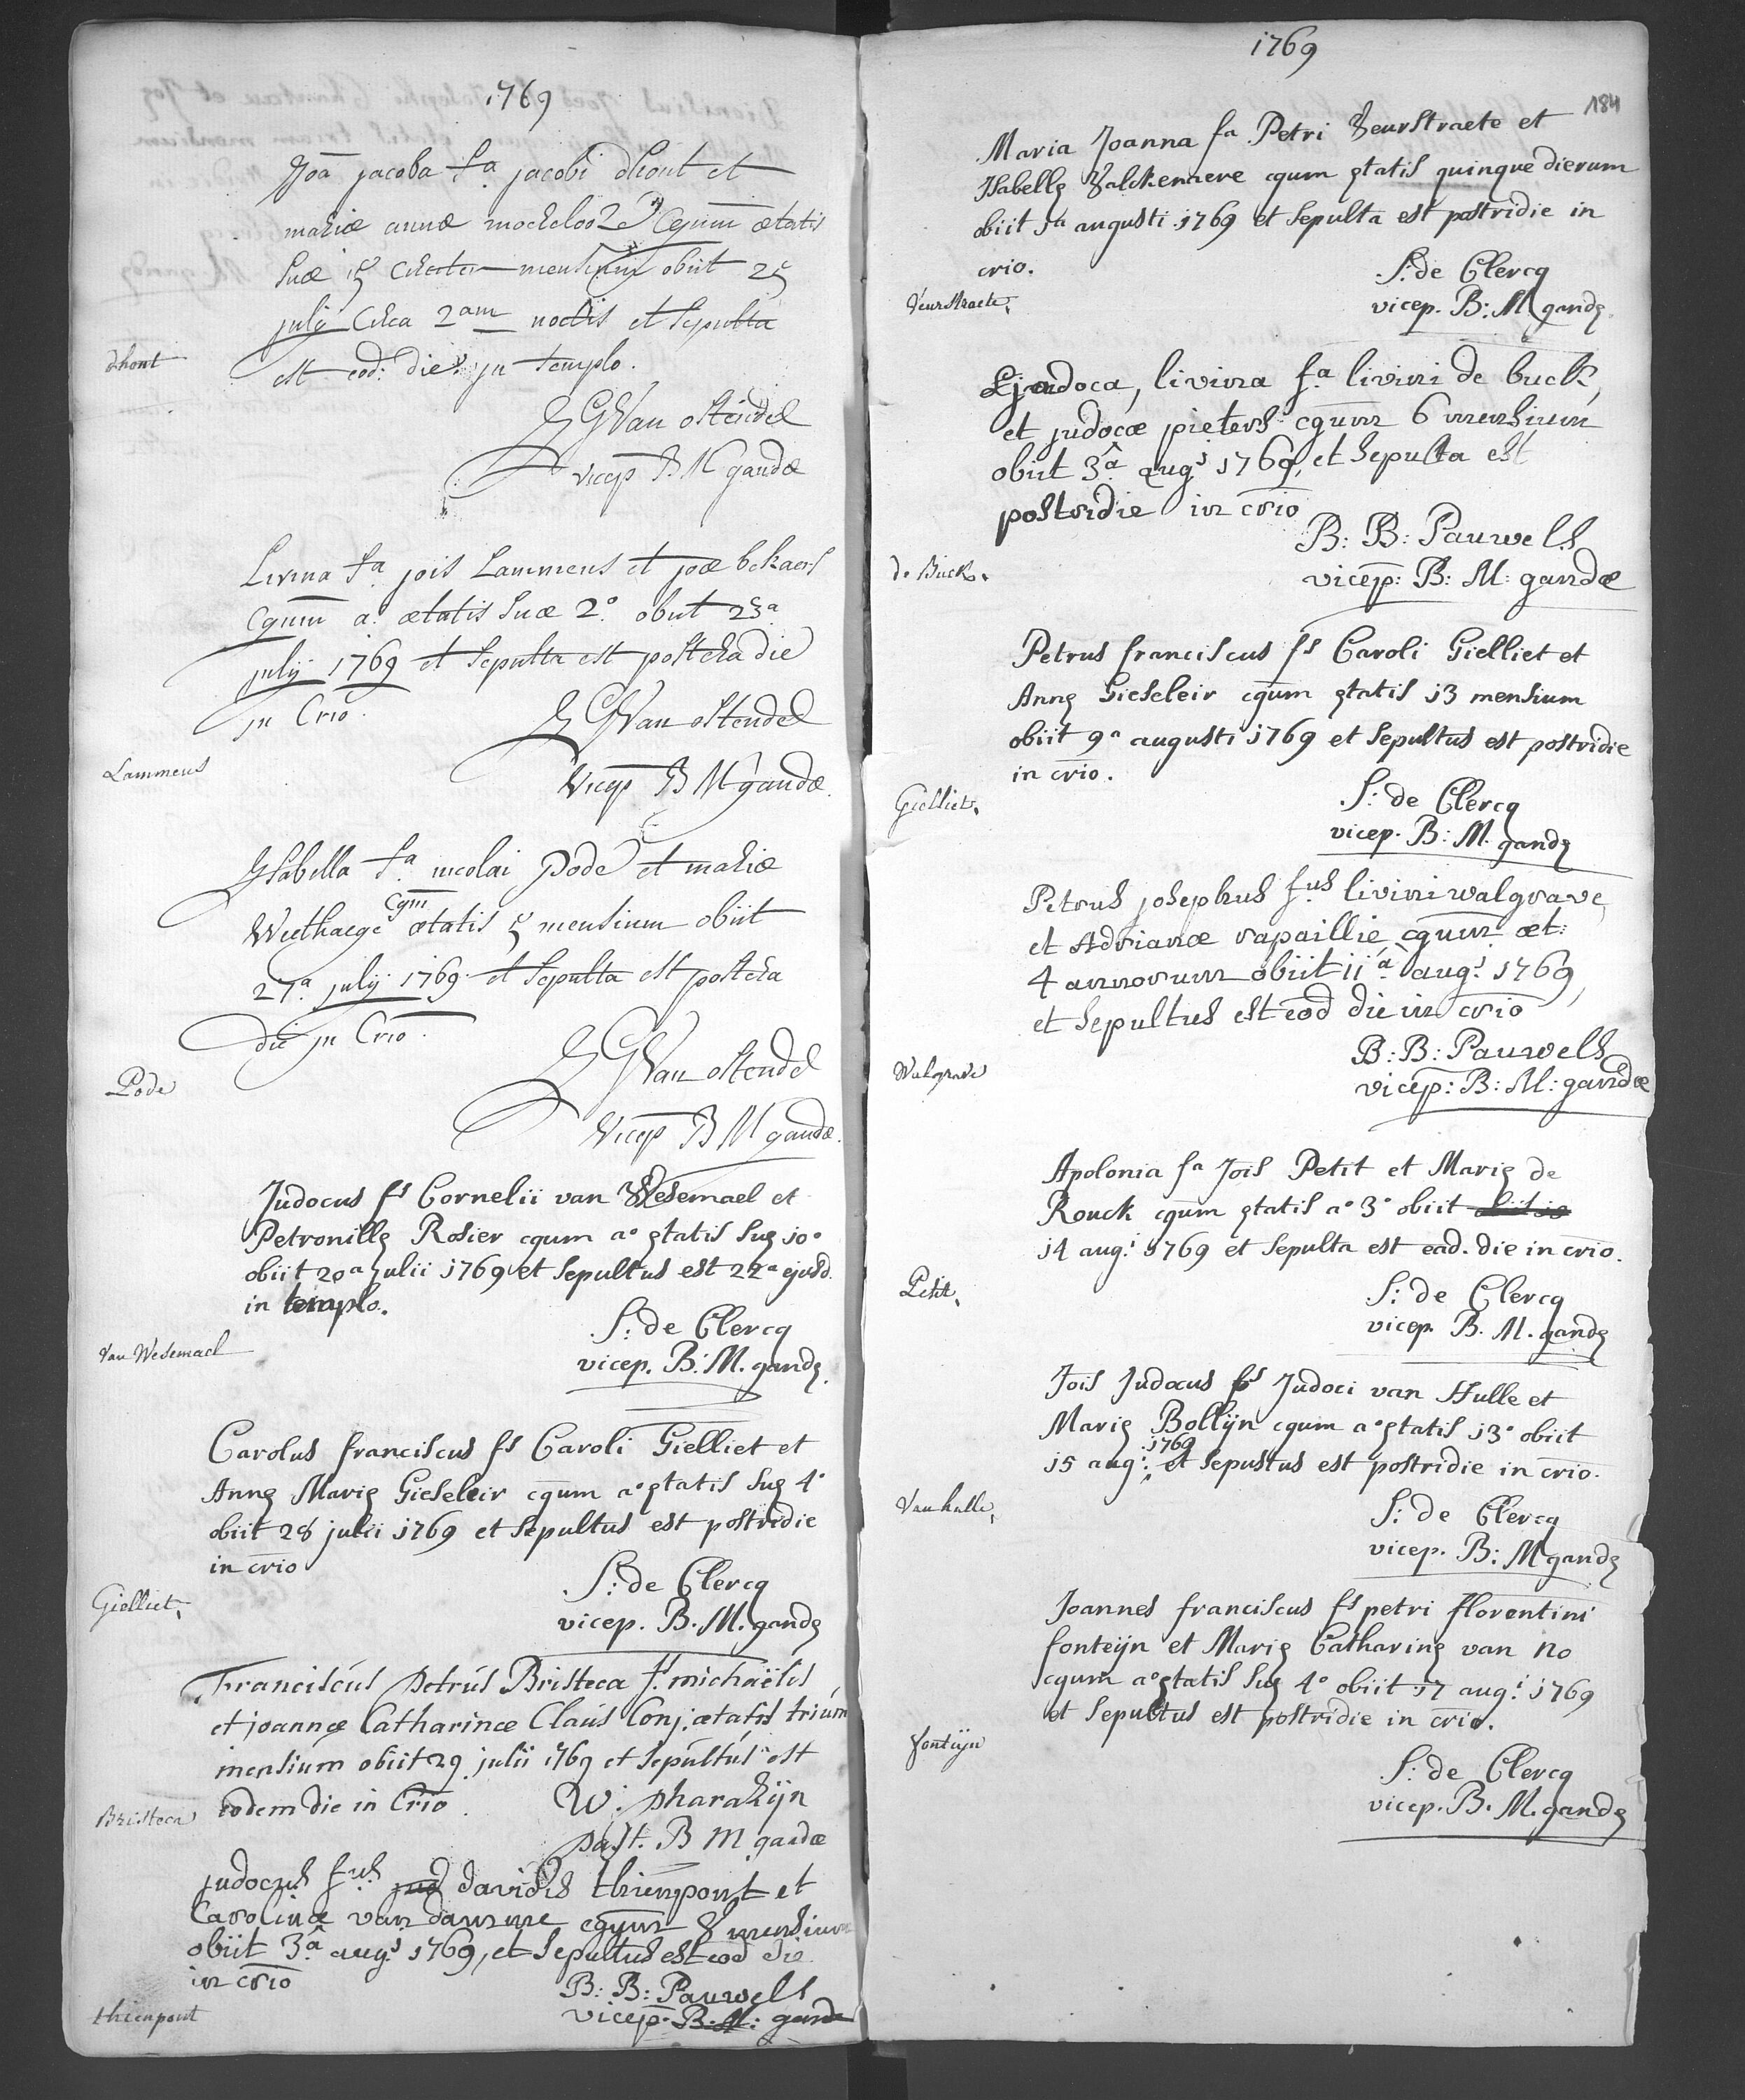 1769
Joã jacoba fa jacobi dhont et
mariæ annæ mochelos cgum ætatis
suæ 5 mensium obiit 25
july Circa 2am noctis et sepulta
est eod: die in templo.
dhont
G Van ostendel
vicep B M gandæ
Livina fa jois Lammens et joæ bekaert
cgum aº ætatis suæ 2º. obiit 23a
julij 1769 et sepulta est postera die
in Crio.
G Van ostendel
Lammens
vicep B M gandæ.
Isabella fa nicolai Pode et mariæ
cgm
Weethaege ætatis 5 mensium obiit
27a. julij 1769 et sepulta est postera
die in Crio.
G Van ostendel
Pode
vicep B M gandæ.
Judocus fs Cornelii van Wesemael et
Petronillę Rosier cgum aº ętatis suę 10º
obiit 20a Julii 1769 et sepultus est 22a ejusd.
in templo.
S: de Clercq
Van Wesemael
vicep. B: M. gandę.
Carolus franciscus fs Caroli Gielliet et
Annę Marię Gieseleir cgum aºętatis suę 4º
obiit 28 julii 1769 et sepultus est postridie
in crio
S: de Clercq
Gielliet.
vicep. B. M. gandę
Franciscus petrus Bristeca fs michaëlis
et joannæ Catharinæ Claus Conj. ætatis trium
mensium obiit 29 julii 1769 et sepultus est
eodem die in Crio.
W: pharazijn
Bristeca
past. B M gandæ
judocus fus jud davidis thienpont et
Carolinæ van damme cgum 8 mensium
obiit 3â augi 1769, et sepultus est eod die
in crio
B: B: Pauwels
thienpont
vicep: B: M: gandæ
1769
184
Maria Joanna fa Petri Veurstraete et
Isabellę Valckenaere cgum ętatis quinque dierum
obiit 1a augusti 1769 et sepulta est postridie in
crio.
S: de Clercq
Veurstraete.
vicep. B: M. gandę.
judoca, livina fa livini de buck,
et judocæ pieters cgum 6 mensium
obiit 3â augi 1769, et sepulta est
postridie in crio
B: B: Pauwels
de Buck.
vicep: B: M: gandæ
Petrus franciscus fs Caroli Gielliet et
Annę Gieseleir cgum ętatis 13 mensium
obiit 9a augusti 1769 et sepultus est postridie
in crio.
S: de Clercq
Gielliet.
vicep. B: M. gandę
Petrus josephus fus livini walgrave,
et Adrianæ rapaillie cgum æt:
4 annorum obiit 11â augi 1769,
et sepultus est eod die in crio
B: B: Pauwels
Walgrave
vicep: B: M: gandæ
Apolonia fa Jois Petit et Marię de
Rouck cgum ętatis aº 3º obiit obiit 10
14 augi 1769 et sepulta est ead. die in crio.
S: de Clercq
Petit.
vicep. B. M. gandę
Jois Judocus fs Judoci van Hulle et
Marię Bollijn cgum aºętatis 13º obiit
1769
15 augi. et sepultus est postridie in crio.
S: de Clercq
Vanhulle.
vicep. B: M gandę
Joannes franciscus fs petri florentini
fonteijn et Marię Catharinę van no
cgum aºętatis suę 4º obiit 17 augi 1769
et sepultus est postridie in crio.
fonteijn
S: de Clercq
vicep. B. M. gandę